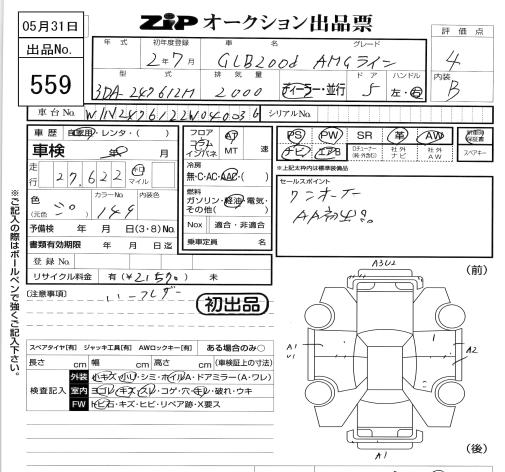 05月31日
出品No.
559
ZIP オークション出品票
評価点
4
内装
B
年式 初年度登録 車名 グレード
2年7月 GLB200d AMGライン
型式 排気量 ドア ハンドル
3DA-247612M 2000 ディーラー・並行 5 左・右
車台No. W1N2476122W040036 シリアルNo.
車歴 自家用・レンタ・( )
車検 年 月
走行 27,622 キロ マイル
色 (元色 ) カラーNo 内装色
149
予備検 年 月 日(3・8)No
書類有効期限 年 月 日迄
登録No
リサイクル料金 有(¥ ) 未
フロア コラム インパネ AT MT 速
冷房
無・C・AC・AAC・( )
燃料
ガソリン・軽油・電気・その他( )
Nox 適合・非適合
乗車定員 名
PS PW SR 革 AW 新車時保証書
ナビ エアB Dチューナー(純・外含む) 社外ナビ 社外AW スペアキー
*上記太枠内は標準装備品
セールスポイント
ワンオーナー
AA初出品
※ご記入の際はボールペンで強くご記入下さい。
[注意事項]
初出品
スペアタイヤ[有] ジャッキ工具[有] AWロックキー[有] ある場合のみ〇
長さ cm 幅 cm 高さ cm (車検証上の寸法)
検査記入
外装 小キズ・小リ・シミ・ホイルA・ドアミラー(A・ワレ)
室内 ヨゴレ・キズ・スレ・コゲ・穴・キレ・破れ・ウキ
FW トビ石・キズ・ヒビ・リペア跡・X要ス
A3U2
(前)
A1
U1
A2
A1
(後)